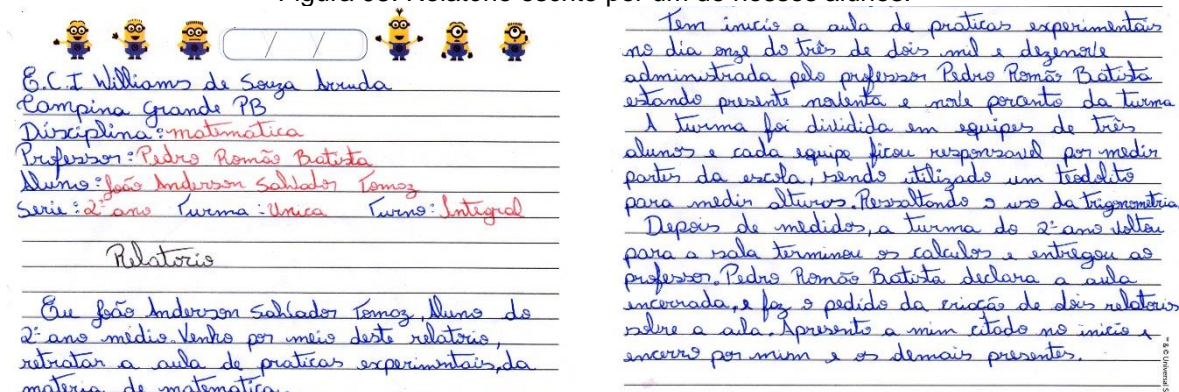 Figura 08: Relatório escrito por um de nossos alunos.
/ /
E.C.I Williams de Souza Arruda
Campina Grande PB
Disciplina: matematica
Professor: Pedro Romão Batista
Aluno: João Anderson Salvador Tomoz
Serie: 2º ano Turma: Unica Turno: Integral
Relatorio
Eu João Anderson Salvador Tomoz, Aluno do
2º ano médio. Venho por meio deste relatorio,
retratar a aula de praticas experimentais, da
materia de matematica.
Tem inicio a aula de praticas experimentais
no dia onze do três de dois mil e dezenove
administrada pelo professor Pedro Romão Batista
estando presente noventa e nove porcento da turma
A turma foi dividida em equipes de três
alunos e cada equipe ficou responsavel por medir
partes da escola, sendo utilizado um teodolito
para medir alturas. Ressaltando o uso da trigonometria
Depois de medidos, a turma do 2º ano voltou
para a sala terminou os calculos e entregou ao
professor. Pedro Romão Batista declara a aula
encerrada, e faz o pedido da criação de dois relatorios
sobre a aula. Apresento a mim citado no inicio e
encerro por mim e os demais presentes.